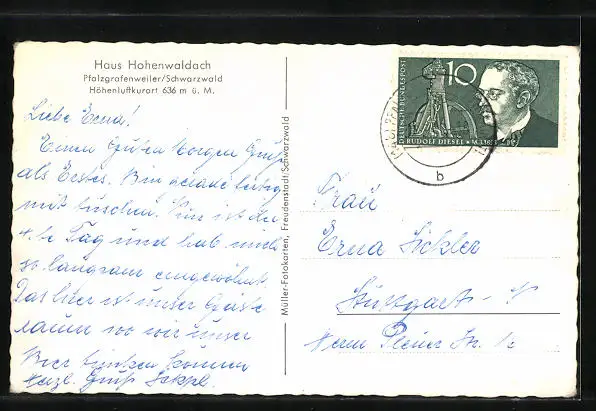 Haus Hohenwaldach
Pfalzgrafenweiler/Schwarzwald
Höhenluftkurort 636 m ü. M.
Liebe Erna!
Einen Guten Morgen Gruß
als Erstes. Bin gerade fertig
mit duschen. Nun ist der
4te Tag und hab mich
so langsam eingewöhnt.
Das hier ist unser Gäste
raum wo wir unser
Bier trinken können
Herzl. Gruß
Müller-Fotokarten, Freudenstadt/Schwarzwald
DEUTSCHE BUNDESPOST
10
RUDOLF DIESEL
b
Frau
Erna Sickler
Stuttgart -
Herm. Pleuer Str.